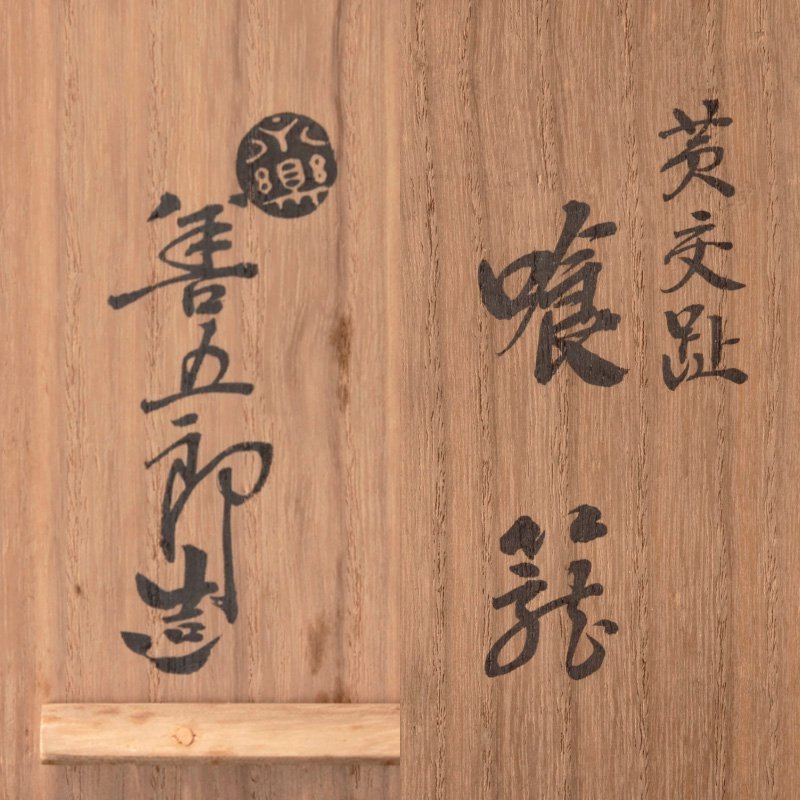 黄交趾
喰籠
永樂
善五郎造